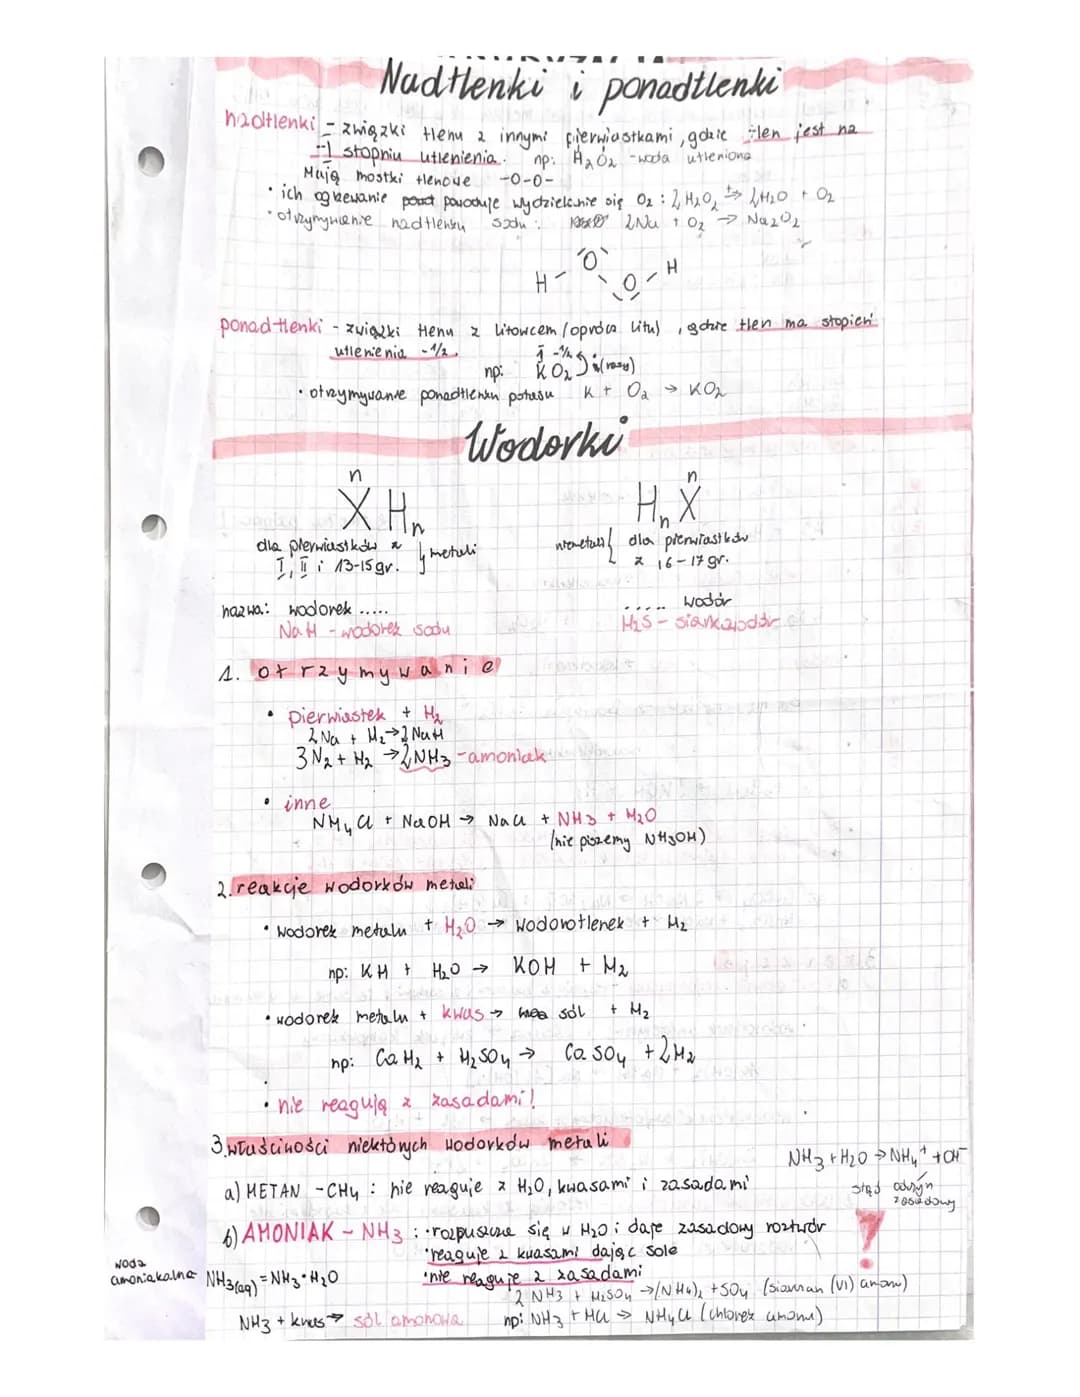 Nadtlenki i ponadtlenki
nadtlenki - związki tlenu z innymi pierwiastkami, gdzie tlen jest na
-1 stopniu utlenienia. np: H₂O₂ - woda utleniona
Mają mostki tlenowe -O-O-
• ich ogrzewanie powoduje wydzielanie się O₂ : 2H₂O₂ → 2H₂O + O₂
• otrzymywanie nadtlenku sodu : 2Na + O₂ → Na₂O₂
H O O H
ponadtlenki - związki tlenu z litowcem (oprócz litu), gdzie tlen ma stopień
utlenienia -1/2.
I -1/2
np: KO₂
• otrzymywanie ponadtlenku potasu K + O₂ → KO₂
Wodorki
n n
XHₙ HₙX
dla pierwiastków z } metali niemetali { dla pierwiastków
I, II i 13-15 gr. z 16-17 gr.
nazwa: wodorek ..... ..... wodór
NaH - wodorek sodu H₂S - siarkowodór
1. otrzymywanie
• pierwiastek + H₂
2Na + H₂ → 2NaH
3N₂ + H₂ → 2NH₃ - amoniak
• inne
NH₄Cl + NaOH → NaCl + NH₃ + H₂O
(nie piszemy NH₃OH)
2. reakcje wodorków metali
• wodorek metalu + H₂O → wodorotlenek + H₂
np: KH + H₂O → KOH + H₂
• wodorek metalu + kwas → sól + H₂
np: CaH₂ + H₂SO₄ → CaSO₄ + 2H₂
• nie reagują z zasadami!
3. właściwości niektórych wodorków metali
NH₃ + H₂O → NH₄⁺ + OH⁻
stąd odczyn
zasadowy
a) METAN - CH₄ : nie reaguje z H₂O, kwasami i zasadami
b) AMONIAK - NH₃ : • rozpuszcza się w H₂O i daje zasadowy roztwór
• reaguje z kwasami dając sole
• nie reaguje z zasadami
!
woda
amoniakalna NH₃(aq) = NH₃·H₂O
2 NH₃ + H₂SO₄ → (NH₄)₂ + SO₄ (siarczan (VI) amonu)
NH₃ + kwas → sól amonowa np: NH₃ + HCl → NH₄Cl (chlorek amonu)